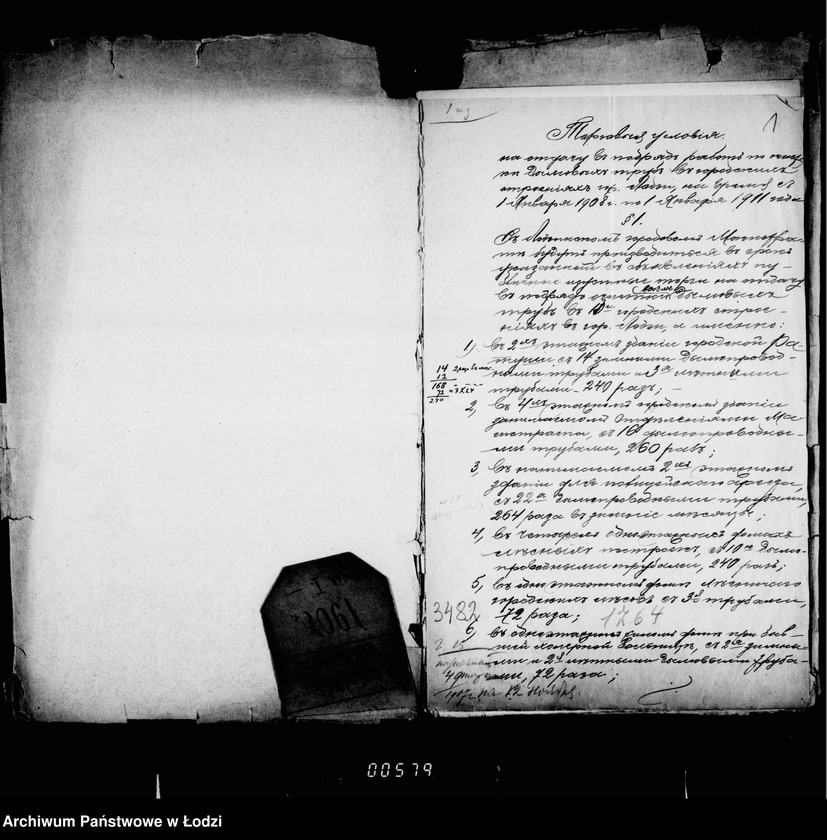 1
Торговыя условія.
на отдачу въ подрядъ работъ по очист
кѣ дымовыхъ трубъ въ городскихъ
строеніяхъ гор. Лодзи, на время съ
1 Января 1908 г. по 1 Января 1911 года
§ 1.
Въ Лодзинскомъ городовомъ Магистра-
тѣ будутъ производиться въ срокъ
указанный въ объявленіяхъ пу-
бличные торги на отдачу
въ подрядъ дымовыхъ
трубъ въ 10 городскихъ строе-
ніяхъ въ гор. Лодзи, а именно:
1) въ 2хъ этажномъ зданіи городской Ра-
туши съ 14 зимними дымопровод-
ными трубами и 3а лѣтними
трубами - 240 разъ; -
14
12
168
72
240
2, въ 4хъ этажномъ городскомъ зданіи
занимаемомъ Отдѣленіями Ма-
гистрата, съ 16 дымопроводны-
ми трубами, 260 разъ;
3, въ нанимаемомъ 2хъ этажномъ
зданіи для полицейскаго ареста,
съ 22а дымопроводными трубами,
264 раза въ зимніе мѣсяцы;
4, въ четырехъ одноэтажныхъ домахъ
лѣсныхъ построекъ, съ 10ю дымо-
проводными трубами, 240 разъ;
5, въ одноэтажномъ домѣ лѣсничаго
городскихъ лѣсовъ съ 3я трубами,
72 раза;
3482
1764
6, въ одноэтажномъ домѣ при быв-
шей холерной больницѣ, съ 2мя зимни-
ми и 2я лѣтними дымовыми труба-
ми, 72 раза;
1907
00579
Archiwum Państwowe w Łodzi